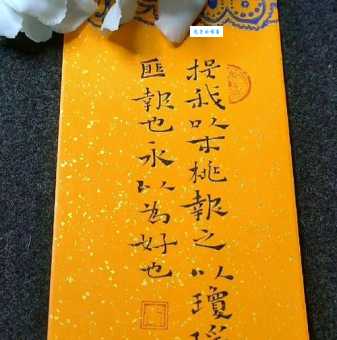 投我以木桃報之以瓊瑤
匪報也永以為好也